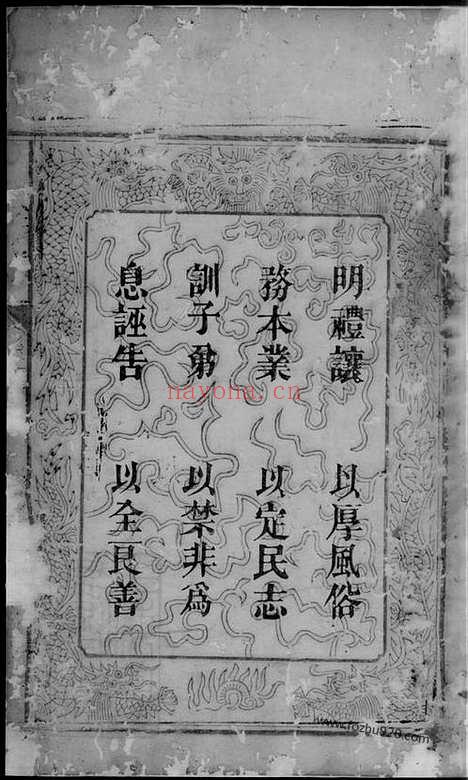 明禮讓 以厚風俗
務本業 以定民志
訓子弟 以禁非爲
息誣告 以全民善
nayona.cn
www.fozhu920.com